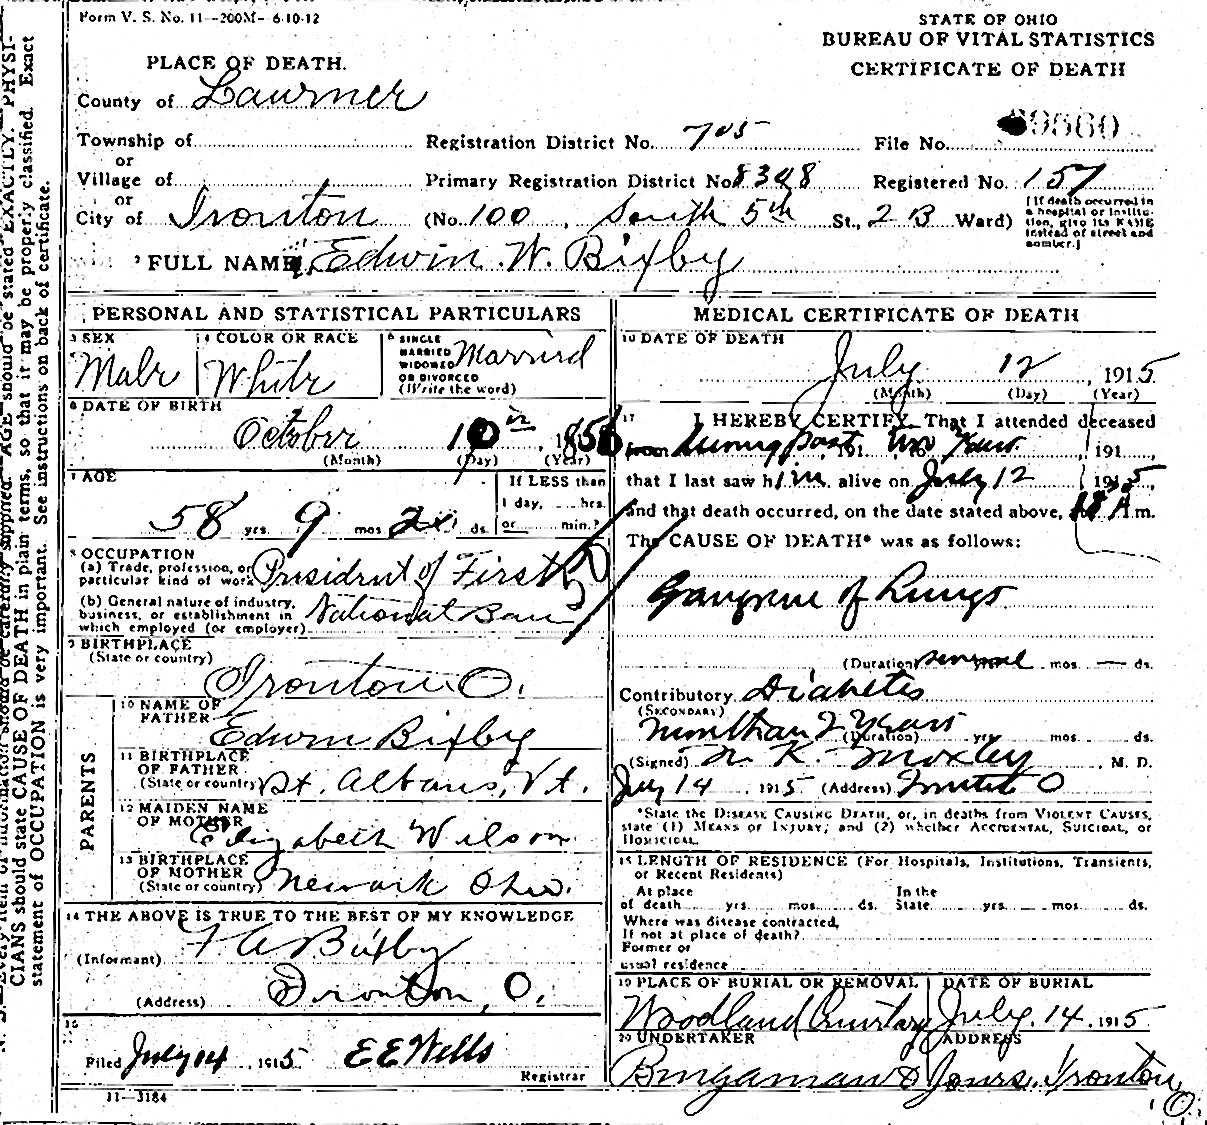 Form V. S. No. 11—200M— 6-10-12
STATE OF OHIO
BUREAU OF VITAL STATISTICS
CERTIFICATE OF DEATH
PLACE OF DEATH.
County of Lawrence
Township of
or
Village of
or
City of Ironton
Registration District No. 705
File No. 39560
Primary Registration District No. 8348
Registered No. 157
(No. 100, South 5th St., 2 B Ward)
[If death occurred in
a hospital or institu-
tion, give its NAME
instead of street and
number.]
2 FULL NAME Edwin W. Bixby
PERSONAL AND STATISTICAL PARTICULARS
3 SEX
Male
4 COLOR OR RACE
White
5 SINGLE
MARRIED
WIDOWED
OR DIVORCED
(Write the word)
Married
6 DATE OF BIRTH
October 10th, 1856
(Month) (Day) (Year)
7 AGE
58 yrs. 9 mos. 2 ds.
If LESS than
1 day, hrs.
or min.?
8 OCCUPATION
(a) Trade, profession, or
particular kind of work President of First
(b) General nature of industry,
business, or establishment in
which employed (or employer) National Bank
9 BIRTHPLACE
(State or country)
Ironton O.
PARENTS
10 NAME OF
FATHER
Edwin Bixby
11 BIRTHPLACE
OF FATHER
(State or country) St. Albans, Vt.
12 MAIDEN NAME
OF MOTHER
Elizabeth Wilson
13 BIRTHPLACE
OF MOTHER
(State or country) Newark Ohio.
14 THE ABOVE IS TRUE TO THE BEST OF MY KNOWLEDGE
(Informant) Bixby
(Address) Ironton, O.
15
Filed July 14, 1915 E E Wells
Registrar
11—3184
MEDICAL CERTIFICATE OF DEATH
16 DATE OF DEATH
July 12, 1915
(Month) (Day) (Year)
17 I HEREBY CERTIFY, That I attended deceased
from during past two years, 191, 191,
that I last saw him alive on July 12, 1915,
and that death occurred, on the date stated above, A m.
The CAUSE OF DEATH* was as follows:
Gangrene of Lungs
(Duration) several mos. — ds.
Contributory Diabetes
(SECONDARY)
more than 2 years
(Duration) yrs. mos. ds.
(Signed) K. Moxley, M. D.
July 14, 1915 (Address) Ironton O
*State the DISEASE CAUSING DEATH, or, in deaths from VIOLENT CAUSES,
state (1) MEANS OF INJURY; and (2) whether ACCIDENTAL, SUICIDAL, or
HOMICIDAL.
18 LENGTH OF RESIDENCE (For Hospitals, Institutions, Transients,
or Recent Residents)
At place In the
of death yrs. mos. ds. State yrs. mos. ds.
Where was disease contracted,
If not at place of death?
Former or
usual residence
19 PLACE OF BURIAL OR REMOVAL
Woodland Cemetery
DATE OF BURIAL
July 14, 1915
20 UNDERTAKER
Bingaman & Jones
ADDRESS
Ironton, O.
AGE should be stated EXACTLY. PHYSI-
CIANS should state CAUSE OF DEATH in plain terms, so that it may be properly classified. Exact
statement of OCCUPATION is very important. See instructions on back of certificate.